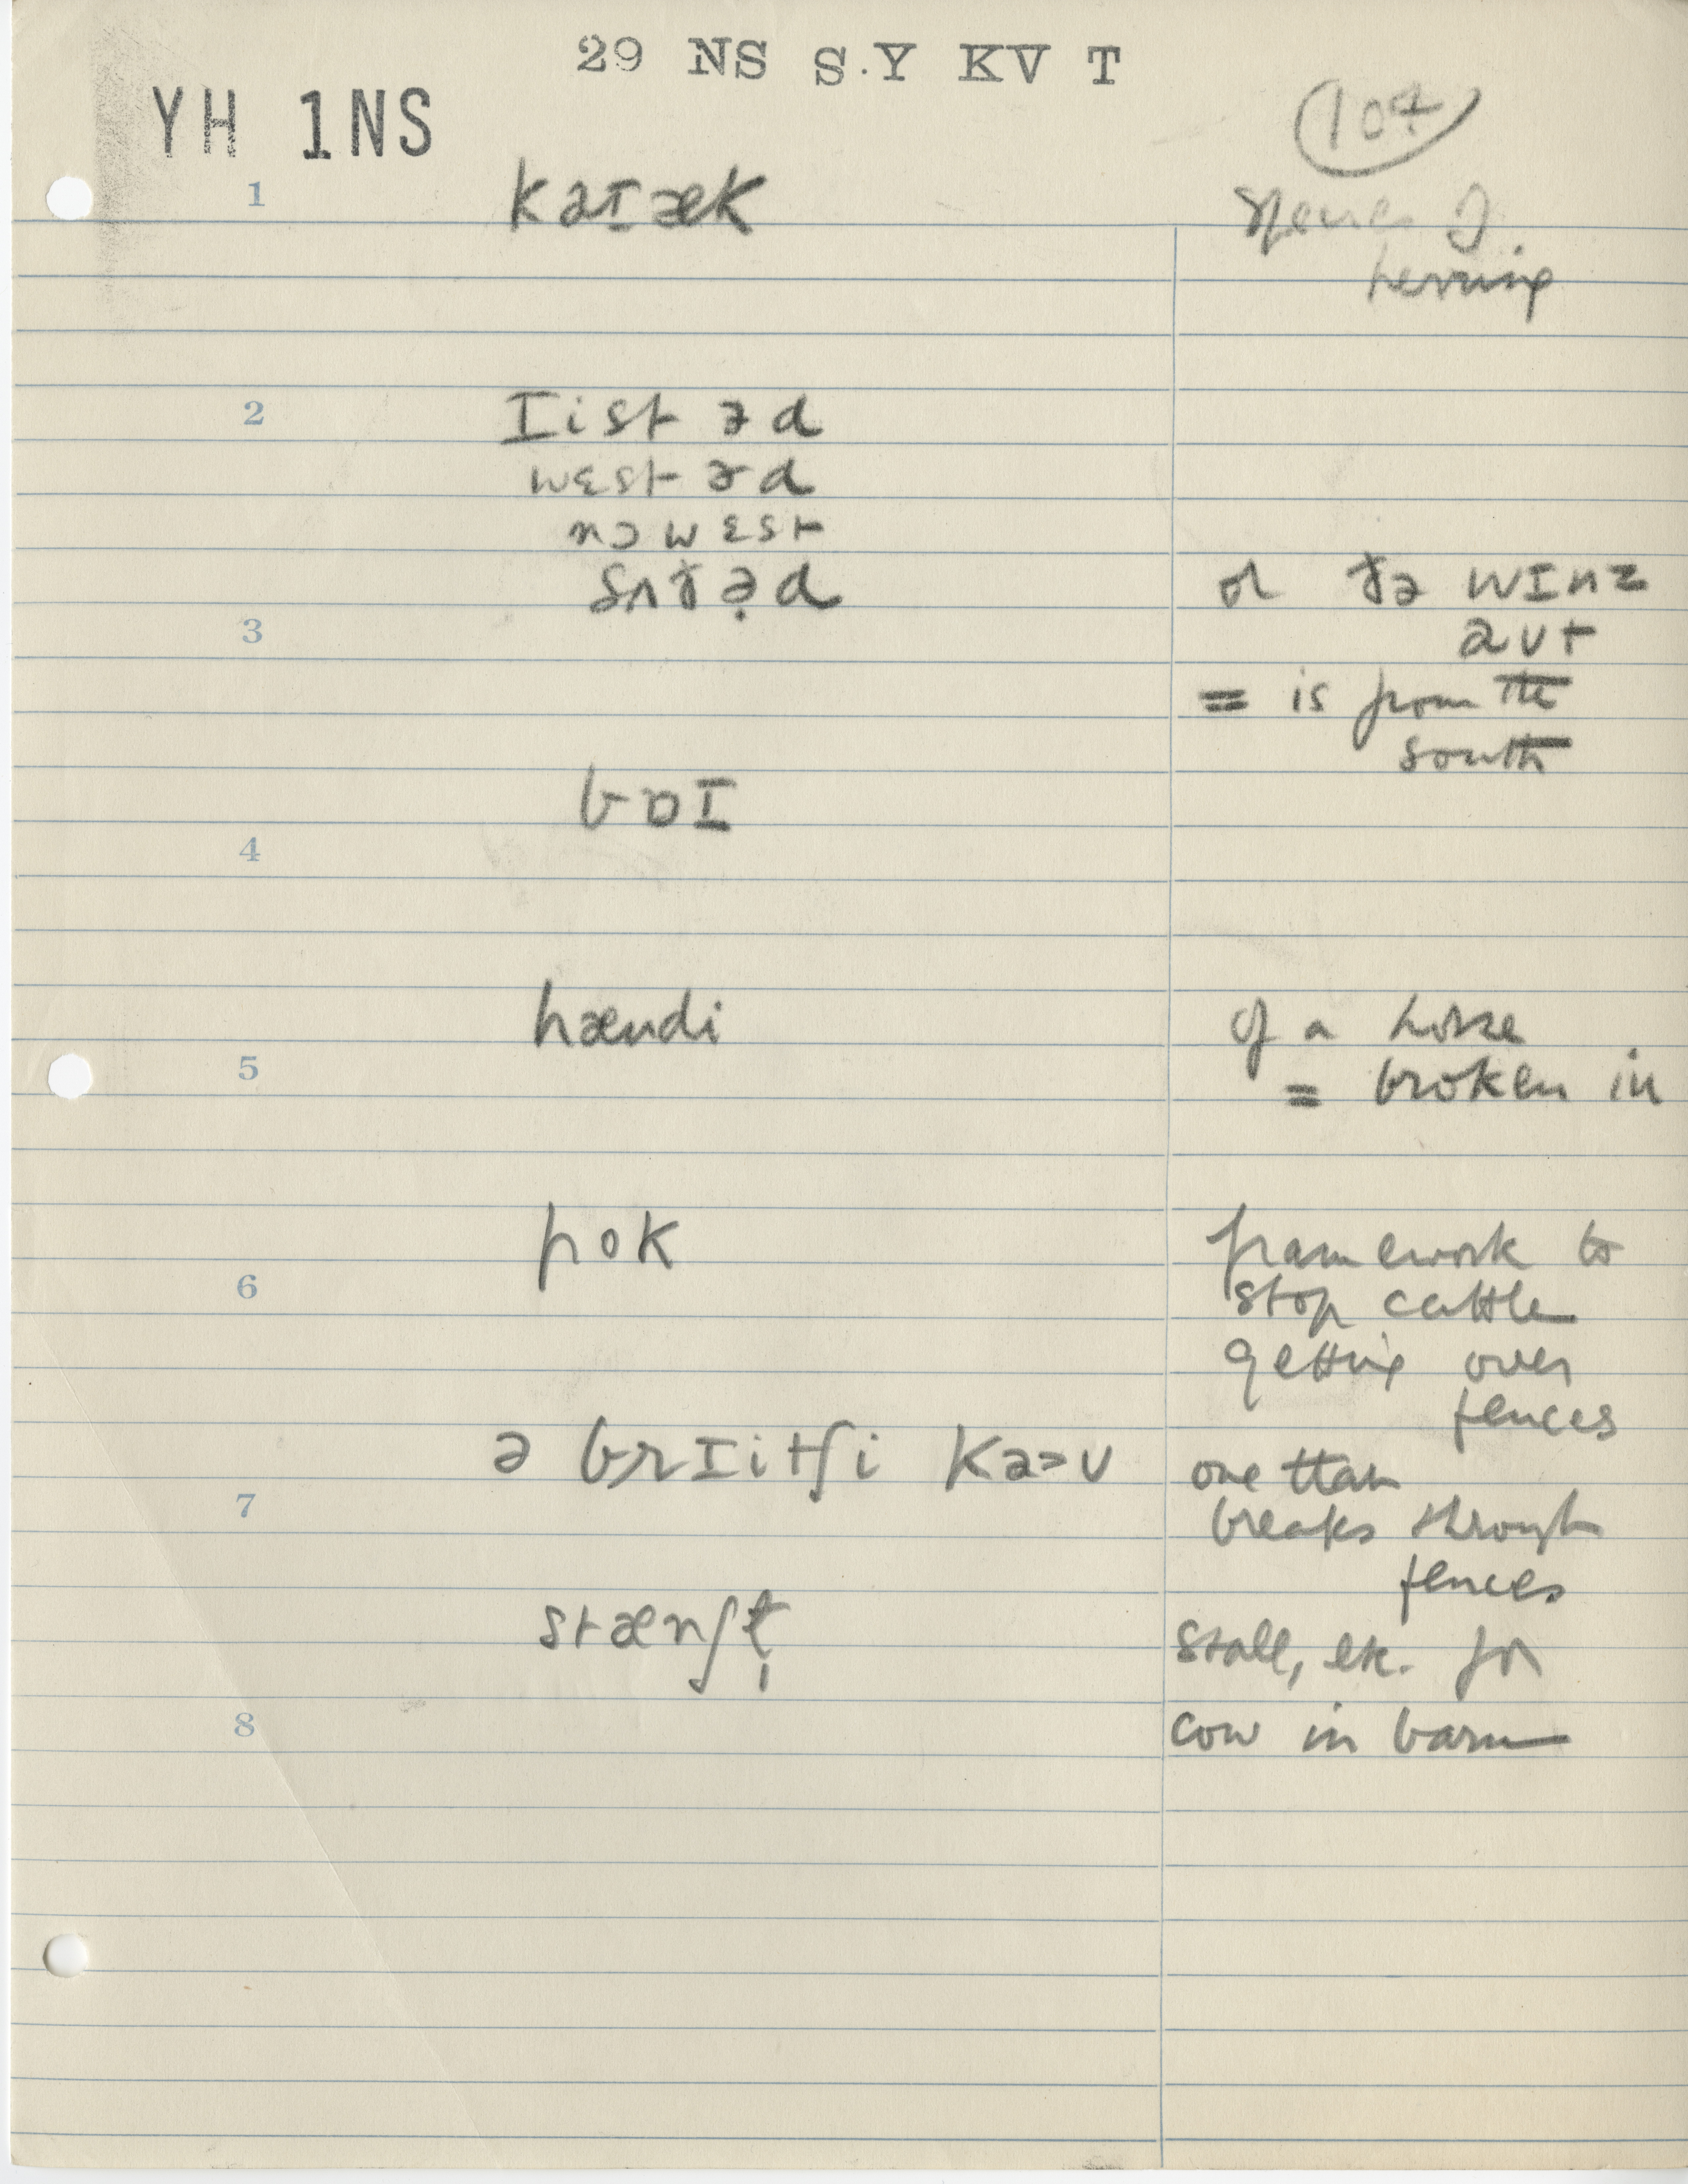 29 NS S.Y KV T
YH 1NS
104
1
kaɪæk
species of
herring
2
ɪist əd
west əd
nɔ wɛst
sʌðə̣d
or ðə wɪnz
aʊt
3
= is from the
south
bɒɪ
4
hændi
of a horse
5
= broken in
pok
framework to
6
stop cattle
getting over
fences
ə brɪitʃi kaʊ
one that
7
breaks through
fences
stænʃl̩
stall, etc. for
8
cow in barn